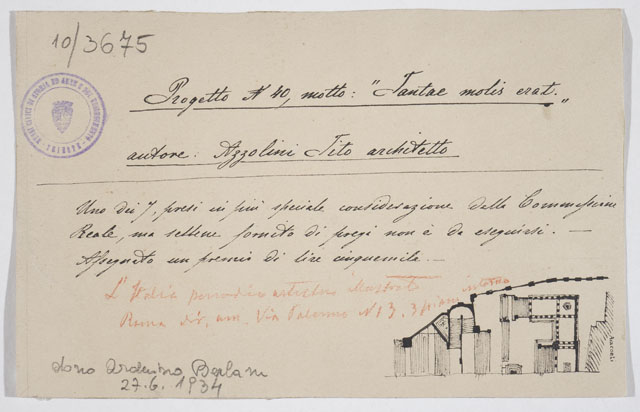 10/3675
Progetto N 40, motto: "Tantae molis erat."
autore: Azzolini Tito architetto
Uno dei 7, presi in più speciale considerazione dalla Commissione
Reale, ma sebbene fornito di pregi non è da eseguirsi. —
Assegnato un premio di lire cinquemila. —
L'Italia periodico artistico illustrato
Roma Via Palermo N 13. 3 piano interno
dono
27.6.1934